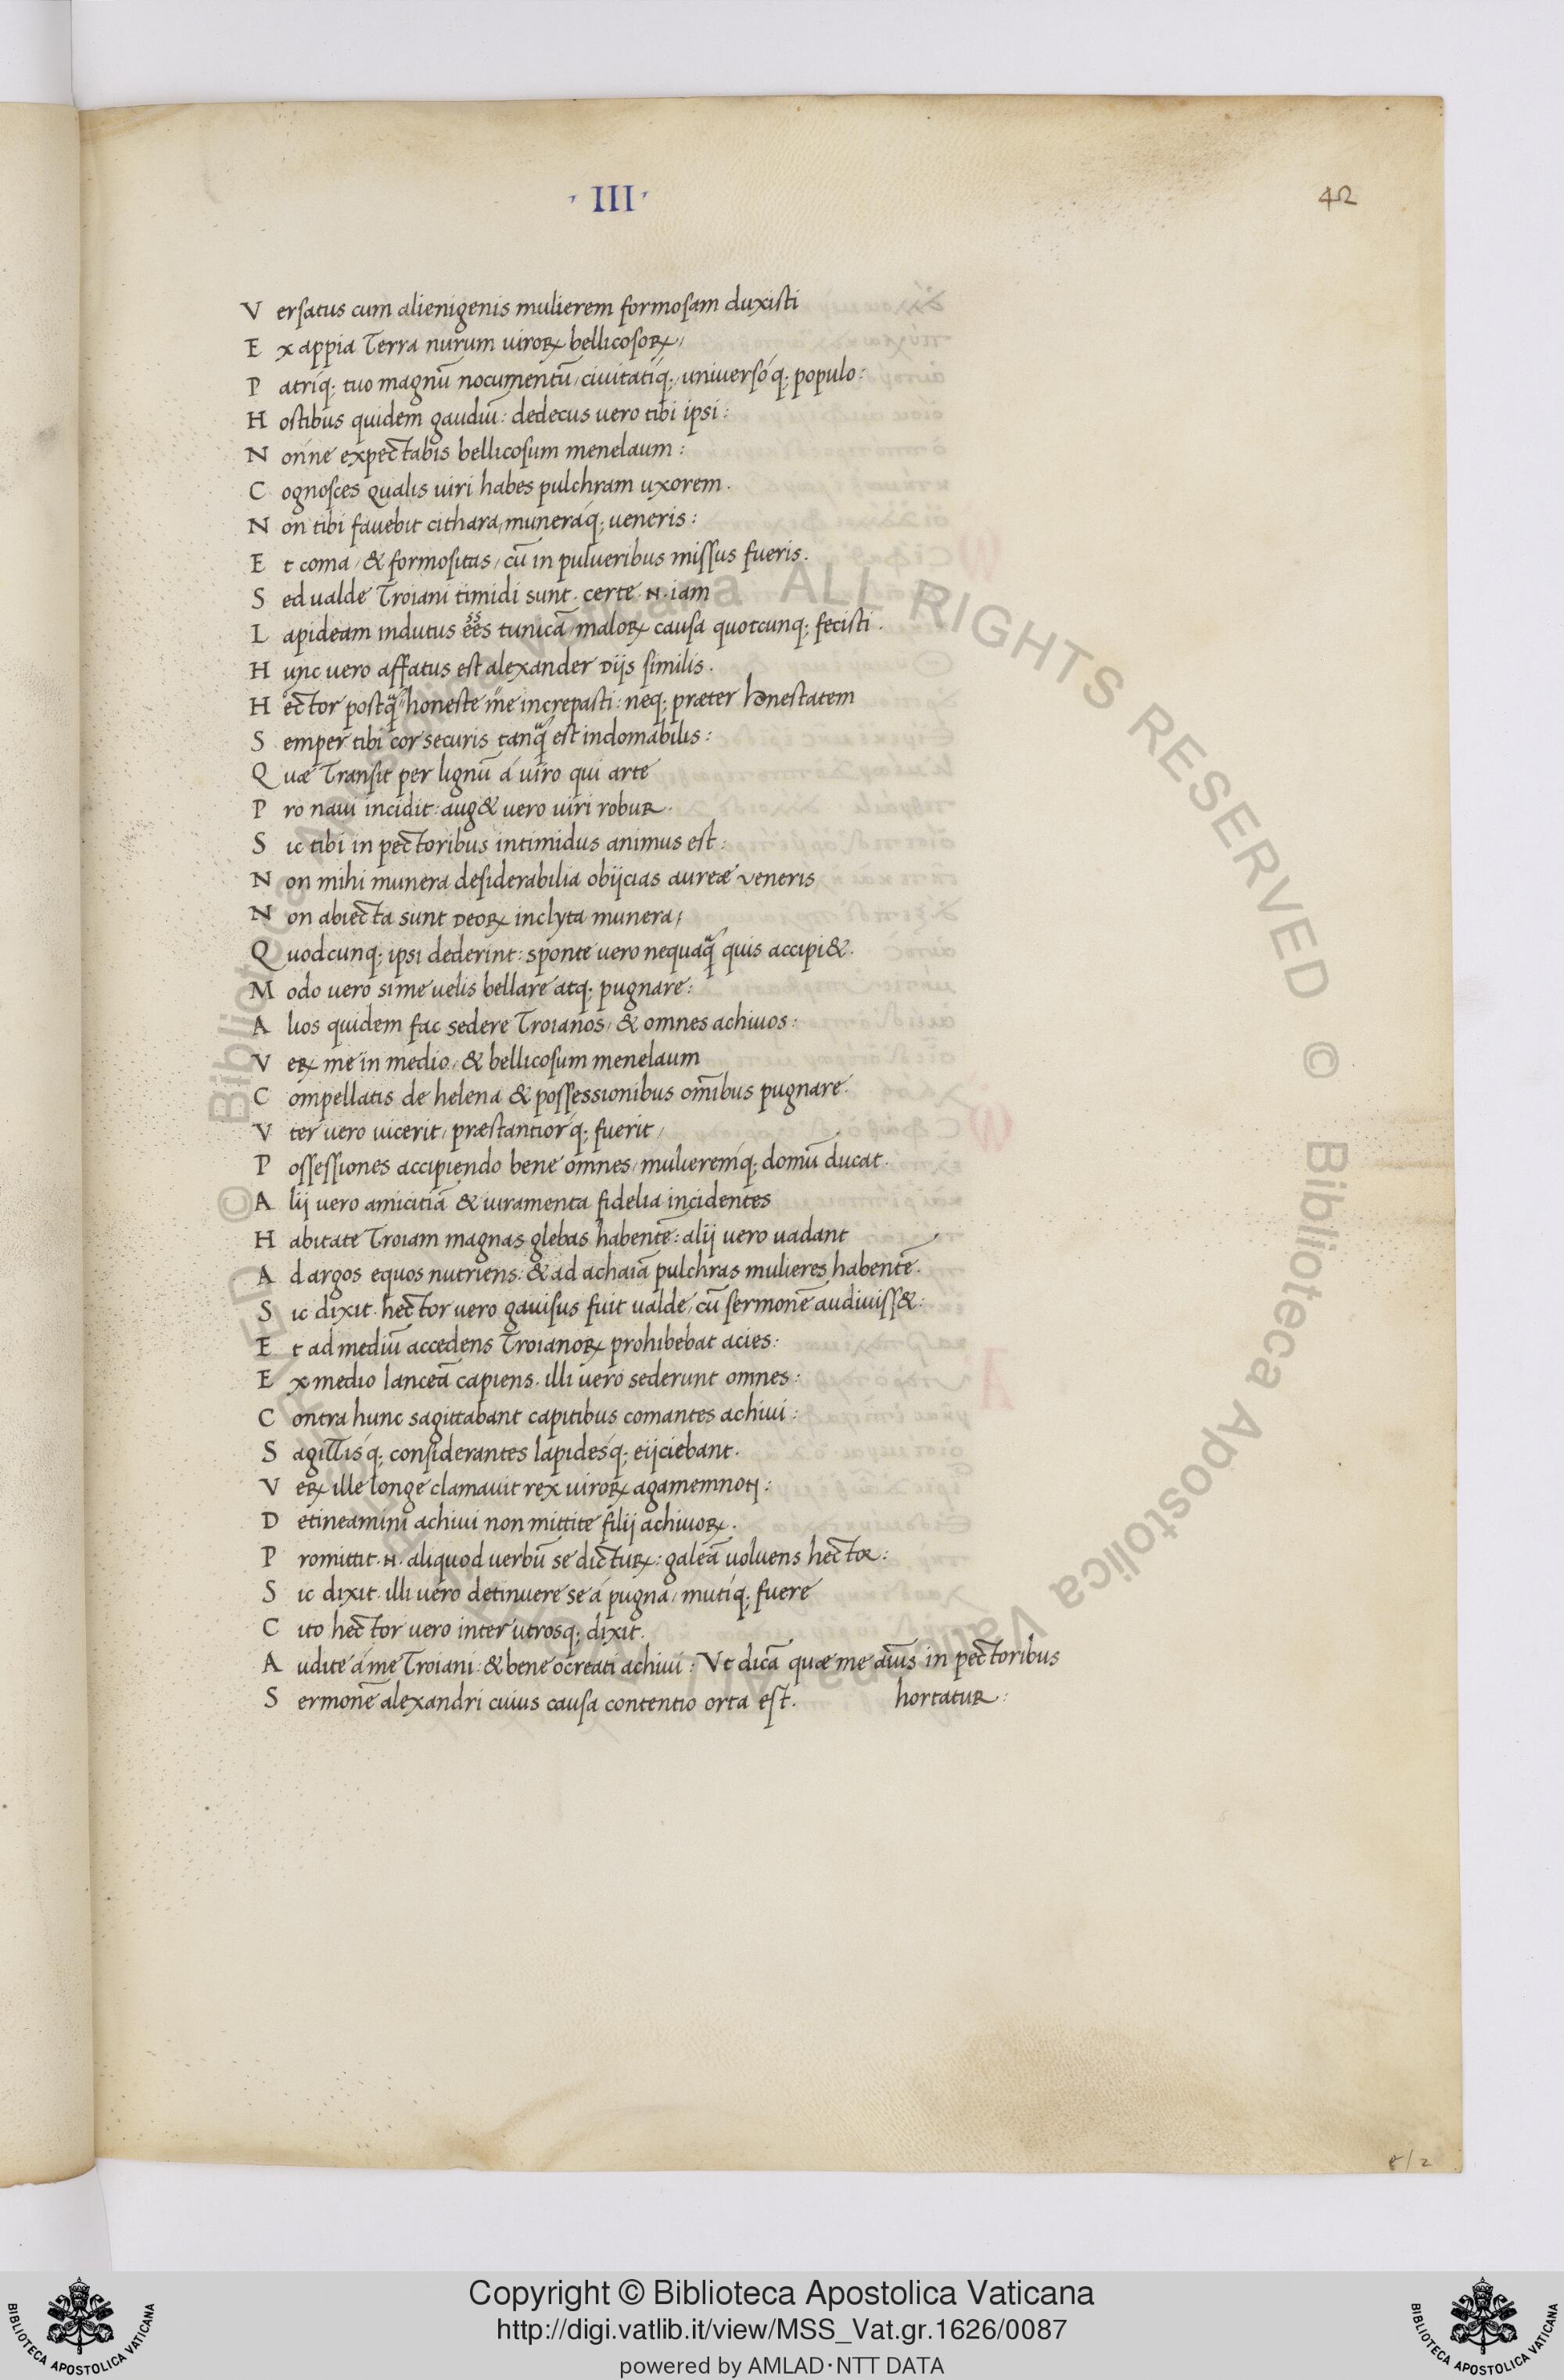 · III ·
42
V ersatus cum alienigenis mulierem formosam duxisti
E x appia Terra nurum uiroꝝ bellicosoꝝ/
P atriq; tuo magnũ nocumentũ/ ciuitatiq;/ uniuersoq; populo:
H ostibus quidem gaudiũ: dedecus uero tibi ipsi:
N onne expectabis bellicosum menelaum:
C ognosces qualis uiri habes pulchram uxorem.
N on tibi fauebit cithara/ muneraq; ueneris:
E t coma/ & formositas/ cũ in pulueribus missus fueris.
S ed ualde Troiani timidi sunt. certe .N. iam
L apideam indutus ẽes tunicã/ maloꝝ causa quotcunq; fecisti.
H unc uero affatus est alexander Diis similis.
H ector postq̃ honeste me increpasti: neq; præter honestatem
S emper tibi cor securis tanq̃ est indomabilis:
Q uæ Transit per lignũ á uiro qui arte
P ro naui incidit: aug& uero uiri robur.
S ic tibi in pectoribus intimidus animus est:
N on mihi munera desiderabilia obijcias aureæ veneris
N on abiecta sunt Deoꝝ inclyta munera/
Q uodcunq; ipsi dederint: sponte uero nequaq̃ quis accipi&.
M odo uero si me uelis bellare atq; pugnare:
A lios quidem fac sedere Troianos/ & omnes achiuos:
V eꝝ me in medio/ & bellicosum menelaum
C ompellatis de helena & possessionibus om̃ibus pugnare.
V ter uero uicerit/ præstantiorq; fuerit/
P ossessiones accipiendo bene omnes/ mulieremq; domũ ducat.
A lij uero amicitiã & iuramenta fidelia incidentes
H abitate Troiam magnas glebas habentẽ: alij uero uadant
A d argos equos nutriens: & ad achaiã pulchras mulieres habentẽ.
S ic dixit. hector uero gauisus fuit ualde/ cũ sermonẽ audiuiss&:
E t ad mediũ accedens Troianoꝝ prohibebat acies:
E x medio lanceã capiens. illi uero sederunt omnes:
C ontra hunc sagittabant capitibus comantes achiui:
S agittisq; considerantes lapidesq; eijciebant.
V eꝝ ille longe clamauit rex uiroꝝ agamemnon:
D etineamini achiui non mittite filij achiuoꝝ.
P romittit .N. aliquod uerbũ se dictuꝝ: galeã uoluens hector:
S ic dixit. illi uero detinuere se á pugna/ mutiq; fuere
C ito hector uero inter utrosq; dixit.
A udite á me Troiani: & bene ocreati achiui: Vt dicã quæ me aĩus in pectoribus
S ermonẽ alexandri cuius causa contentio orta est. hortatur:
8/2
Copyright © Biblioteca Apostolica Vaticana
http://digi.vatlib.it/view/MSS_Vat.gr.1626/0087
powered by AMLAD·NTT DATA
BIBLIOTECA APOSTOLICA VATICANA
BIBLIOTECA APOSTOLICA VATICANA